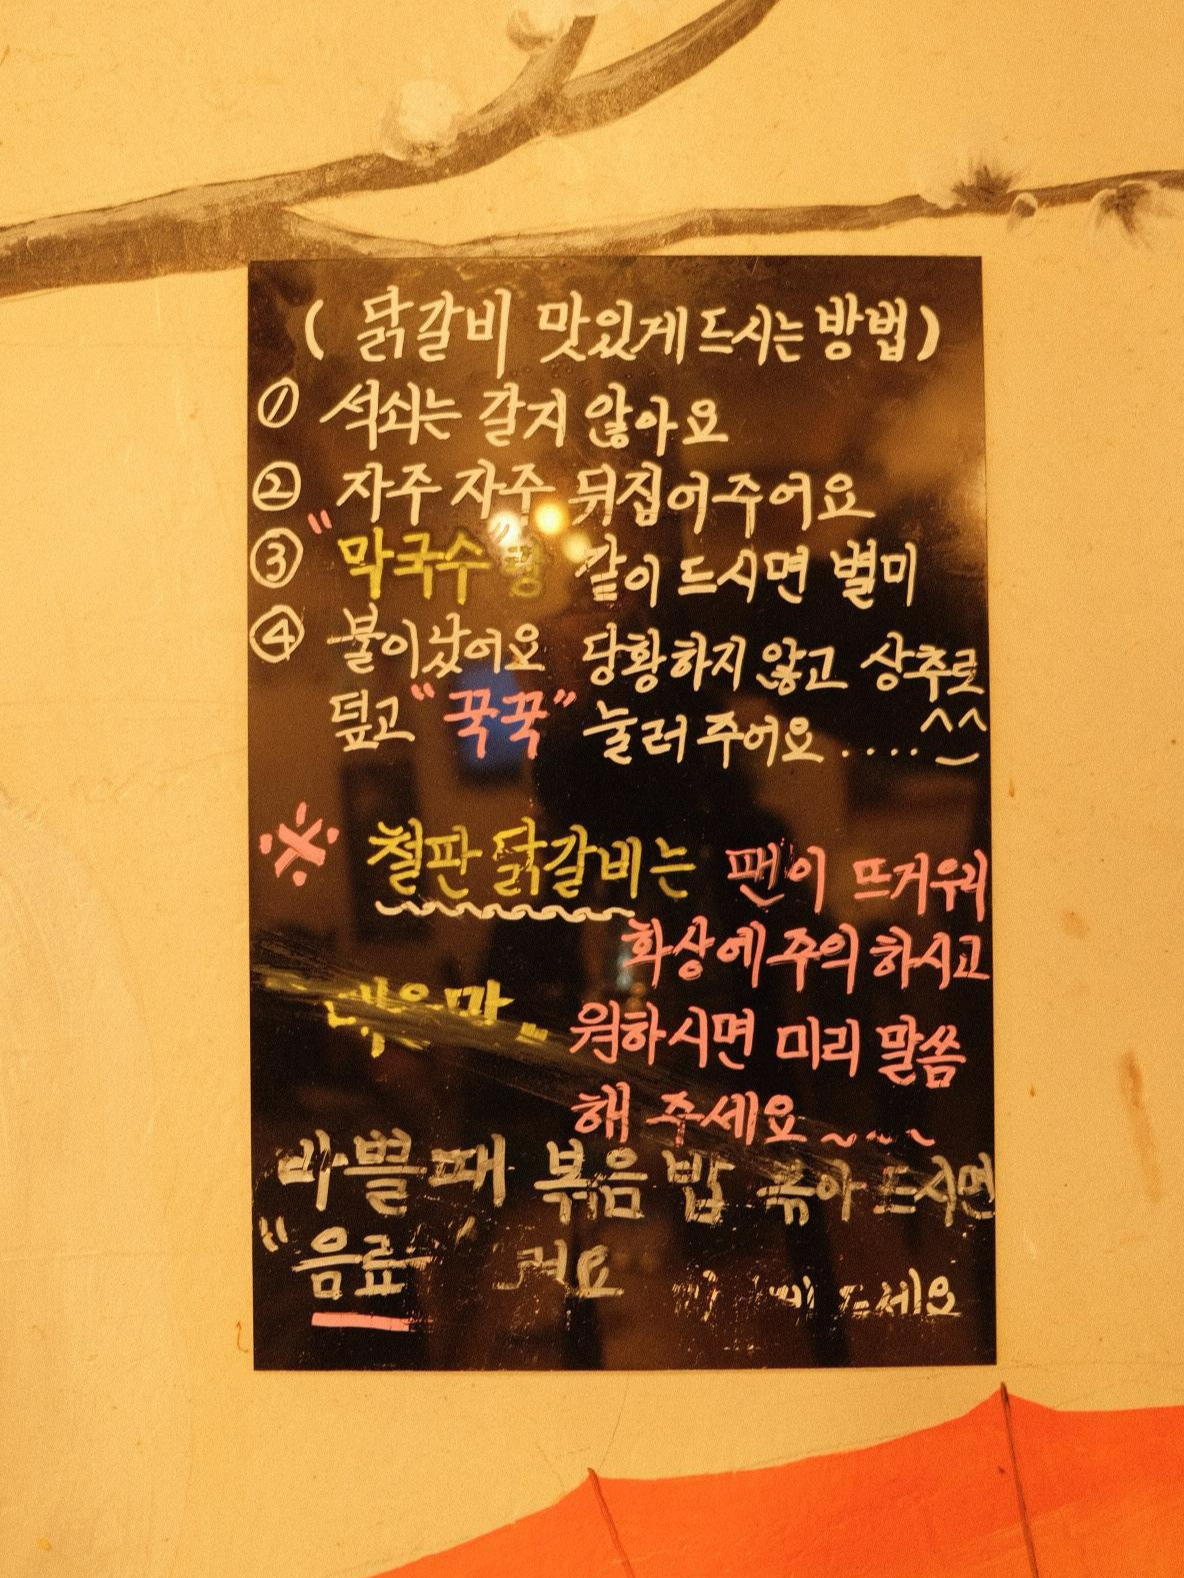 ( 닭갈비 맛있게 드시는 방법 )
① 석쇠는 갈지 않아요
② 자주 자주 뒤집어주어요
③ "막국수"랑 같이 드시면 별미
④ 불이났어요 당황하지 않고 상추로
덮고 "꾹꾹" 눌러 주어요 .... ^^
※ 철판 닭갈비는 팬이 뜨거워
화상에 주의 하시고
원하시면 미리 말씀
해 주세요 ~~~
바쁠때 볶음밥 볶아 드시면
"음료" 드세요